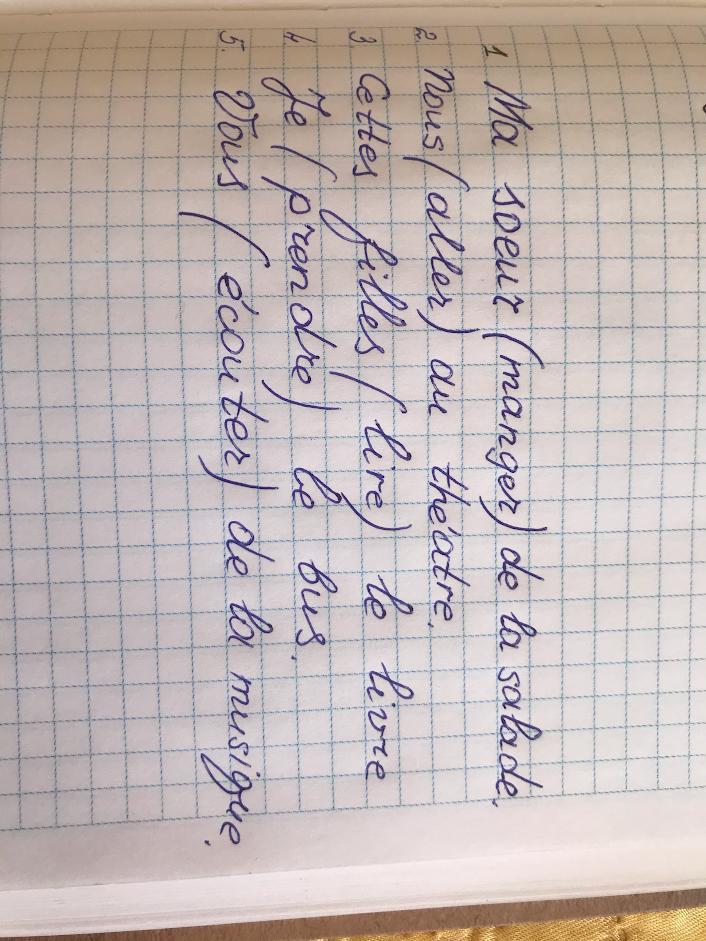 1 Ma soeur (manger) de la salade.
2. Nous (aller) au théatre.
3 Cettes filles (lire) le livre
4. Je (prendre) le bus.
5. Vous (écouter) de la musique.